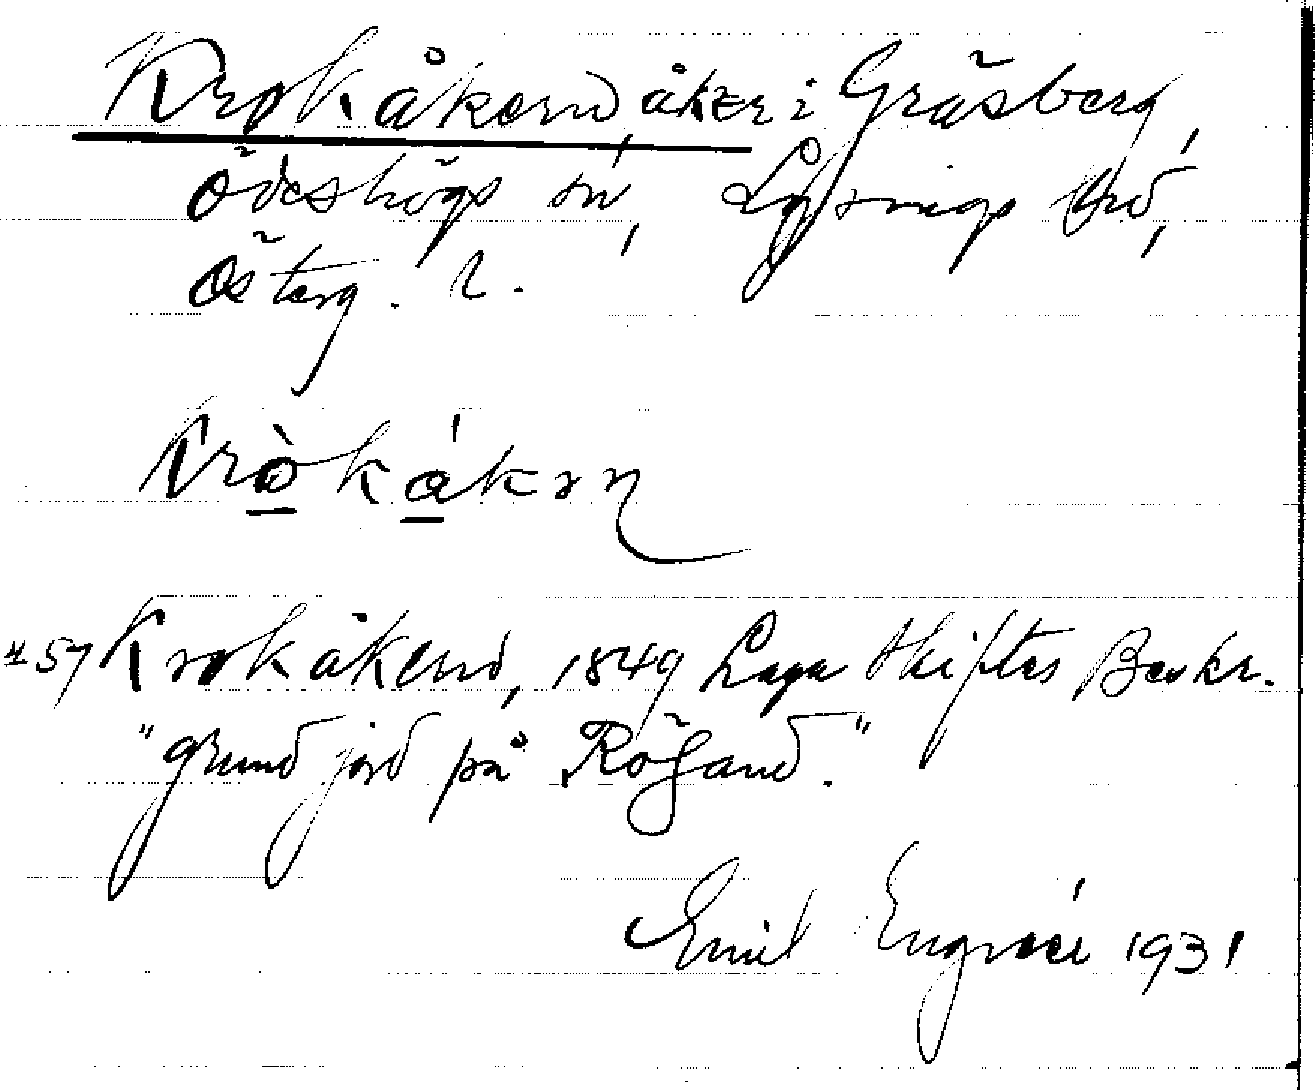 Krokåkern, åker i Gråsberg,
Ödeshögs sn, Lysings hd,
Österg. l.
Kròkákən
#57 Krokåkern, 1849 Laga Skiftes Beskr.
"grund jord på Rögand."
Emil Engvall 1931